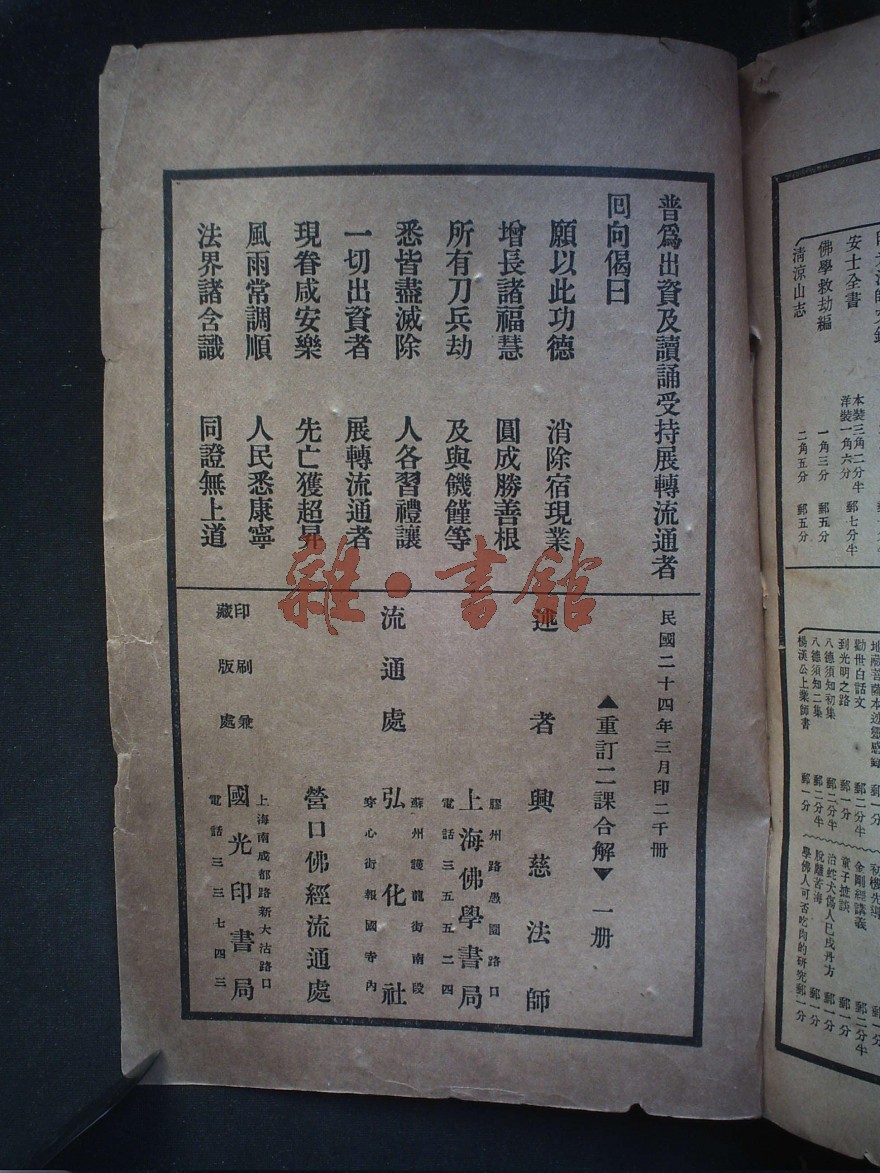 普爲出資及讀誦受持展轉流通者
囘向偈曰
願以此功德 消除宿現業
增長諸福慧 圓成勝善根
所有刀兵劫 及與饑饉等
悉皆盡滅除 人各習禮讓
一切出資者 展轉流通者
現眷咸安樂 先亡獲超昇
風雨常調順 人民悉康寧
法界諸含識 同證無上道
民國二十四年三月印二千冊
▲重訂二課合解▼ 一册
述者 興慈法師
流通處
膠州路愚園路口
上海佛學書局
電話三五五二四
蘇州護龍街南段
弘化社
穿心街報國寺內
營口佛經流通處
印刷兼
藏版處
上海南成都路新大沽路口
國光印書局
電話三三七四三
雜·書館
安士全書 本裝三角二分半 洋裝一角六分 郵七分半
佛學救劫編 一角三分 郵五分
淸涼山志 二角五分 郵五分
地藏菩薩本迹靈感錄 郵一分
勸世白話文 郵二分半
到光明之路 郵一分
八德須知初集 郵二分半
八德須知二集 郵二分半
楊漢公上業師書 郵一分
初機先導 郵一分
金剛經講義 郵二分半
童子摭談 郵一分
治蛇犬傷人巳戌丹方 郵一分
脫離苦海 郵一分
學佛人可否吃肉的研究 郵一分